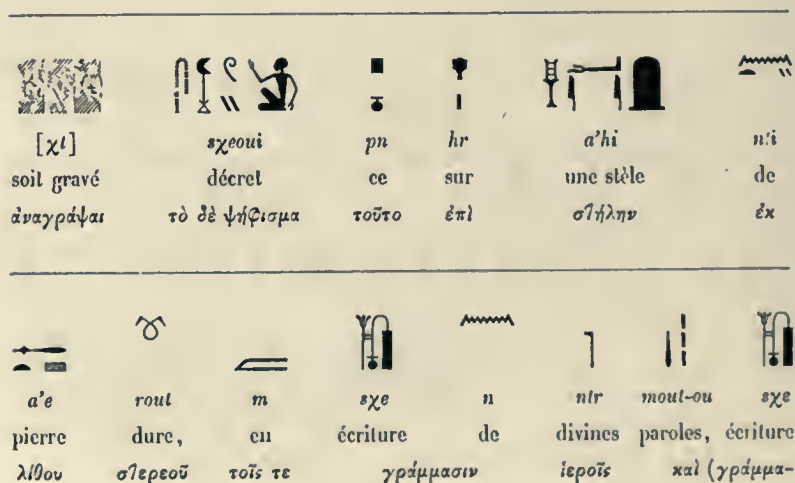 [χt] sχeoui pn hr a'hi nti
soit gravé décret ce sur une stèle de
ἀναγράψαι τὸ δὲ ψήφισμα τοῦτο ἐπὶ στήλην ἐκ
a'e rout m sχe n ntr mout-ou sχe
pierre dure, en écriture de divines paroles, écriture
λίθου στερεοῦ τοῖς τε γράμμασιν ἱεροῖς καὶ (γράμμα-